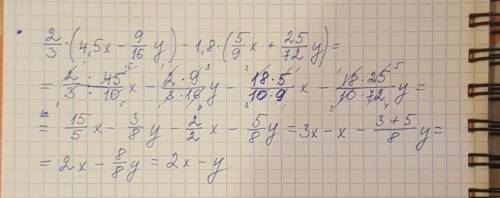 2/3 · (4,5x − 9/16 y) − 1,8 · (5/9 x + 25/72 y) =
= (2 · 45)/(3 · 10) x − (2 · 9)/(3 · 16) y − (18 · 5)/(10 · 9) x − (18 · 25)/(10 · 72) y =
= 15/5 x − 3/8 y − 2/2 x − 5/8 y = 3x − x − (3 + 5)/8 y =
= 2x − 8/8 y = 2x − y